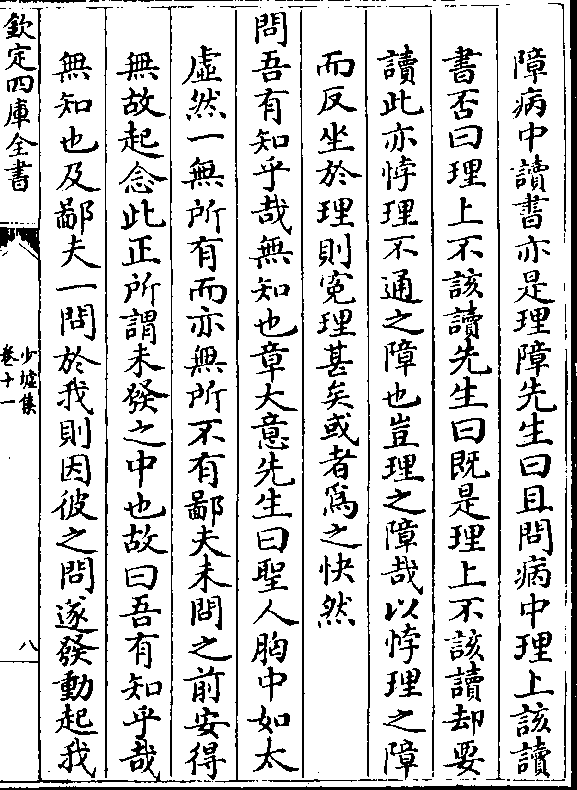 障病中讀書亦是理障先生曰且問病中理上該讀
書否曰理上不該讀先生曰既是理上不該讀却要
讀此亦悖理不通之障也豈理之障哉以悖理之障
而反坐於理則寃理甚矣或者爲之快然
問吾有知乎哉無知也章大意先生曰聖人胸中如太
虛然一無所有而亦無所不有鄙夫未問之前安得
無故起念此正所謂未發之中也故曰吾有知乎哉
無知也及鄙夫一問於我則因彼之問遂發動起我
欽定四庫全書
少墟集
卷十一
八